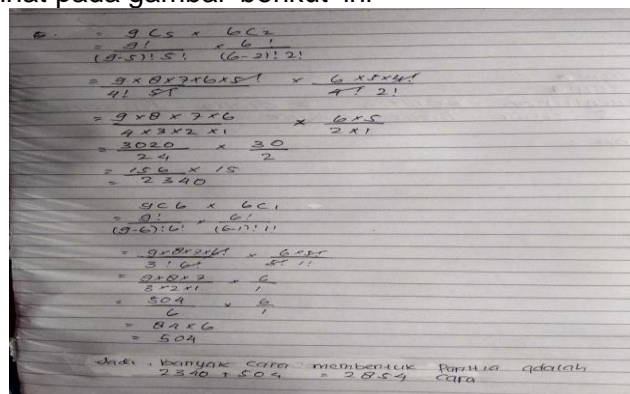 lihat pada gambar berikut ini
6. = 9C5 x 6C2
= 9! / (9-5)! 5! x 6! / (6-2)! 2!
= 9x8x7x6x5! / 4! 5! x 6x5x4! / 4! 2!
= 9x8x7x6 / 4x3x2x1 x 6x5 / 2x1
= 3020 / 24 x 30 / 2
= 156 x 15
= 2340
9C6 x 6C1
= 9! / (9-6)! 6! x 6! / (6-1)! 1!
= 9x8x7x6! / 3! 6! x 6x5! / 5! 1!
= 9x8x7 / 3x2x1 x 6 / 1
= 504 / 6 x 6 / 1
= 84 x 6
= 504
Jadi, banyak cara membentuk Panitia adalah
2340 + 504 = 2854 cara